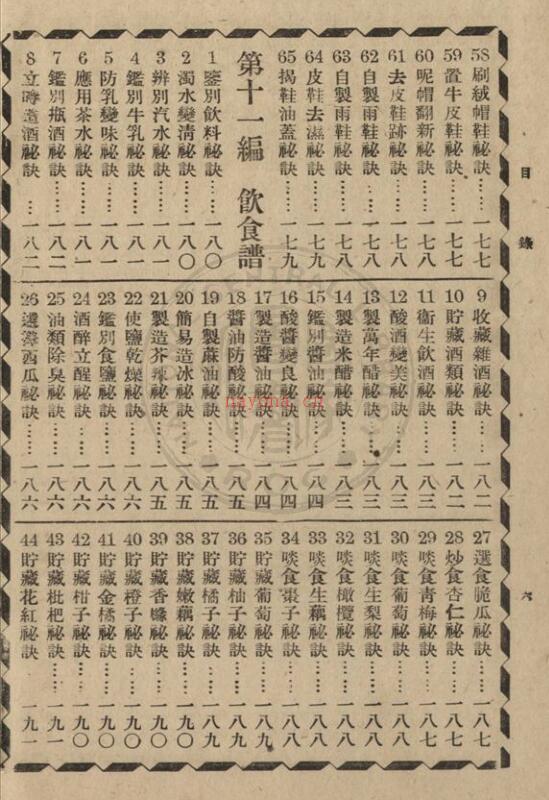 目錄
58 刷絨帽鞋祕訣……一七七
59 置牛皮鞋祕訣……一七七
60 呢帽翻新祕訣……一七八
61 去皮鞋跡祕訣……一七八
62 自製雨鞋祕訣……一七八
63 自製雨鞋祕訣……一七八
64 皮鞋去濕祕訣……一七九
65 揭鞋油蓋祕訣……一七九
第十一編 飲食譜
1 鑒別飲料祕訣……一八〇
2 濁水變清祕訣……一八〇
3 辨別汽水祕訣……一八一
4 鑑別牛乳祕訣……一八一
5 防乳變味祕訣……一八一
6 應用茶水祕訣……一八一
7 鑑別瓶酒祕訣……一八二
8 立時造酒祕訣……一八二
9 收藏雜酒祕訣……一八二
10 貯藏酒類祕訣……一八二
11 衞生飲酒祕訣……一八三
12 酸酒變美祕訣……一八三
13 製萬年醋祕訣……一八三
14 製造米醋祕訣……一八三
15 鑑別醬油祕訣……一八四
16 酸醬變良祕訣……一八四
17 製造醬油祕訣……一八四
18 醬油防酸祕訣……一八五
19 自製蔴油祕訣……一八五
20 簡易造冰祕訣……一八五
21 製造芥辣祕訣……一八五
22 使鹽乾燥祕訣……一八六
23 鑑別食鹽祕訣……一八六
24 酒醉立醒祕訣……一八六
25 油類除臭祕訣……一八六
26 選擇西瓜祕訣……一八六
27 選食脆瓜祕訣……一八七
28 炒食杏仁祕訣……一八七
29 啖食青梅祕訣……一八七
30 啖食葡萄祕訣……一八八
31 啖食生梨祕訣……一八八
32 啖食橄欖祕訣……一八八
33 啖食生藕祕訣……一八八
34 啖食棗子祕訣……一八八
35 貯藏葡萄祕訣……一八九
36 貯藏柚子祕訣……一八九
37 貯藏橘子祕訣……一八九
38 貯藏嫩藕祕訣……一九〇
39 貯藏香櫞祕訣……一九〇
40 貯藏橙子祕訣……一九〇
41 貯藏金橘祕訣……一九〇
42 貯藏柑子祕訣……一九〇
43 貯藏枇杷祕訣……一九一
44 貯藏花紅祕訣……一九一
六
nayona.cn